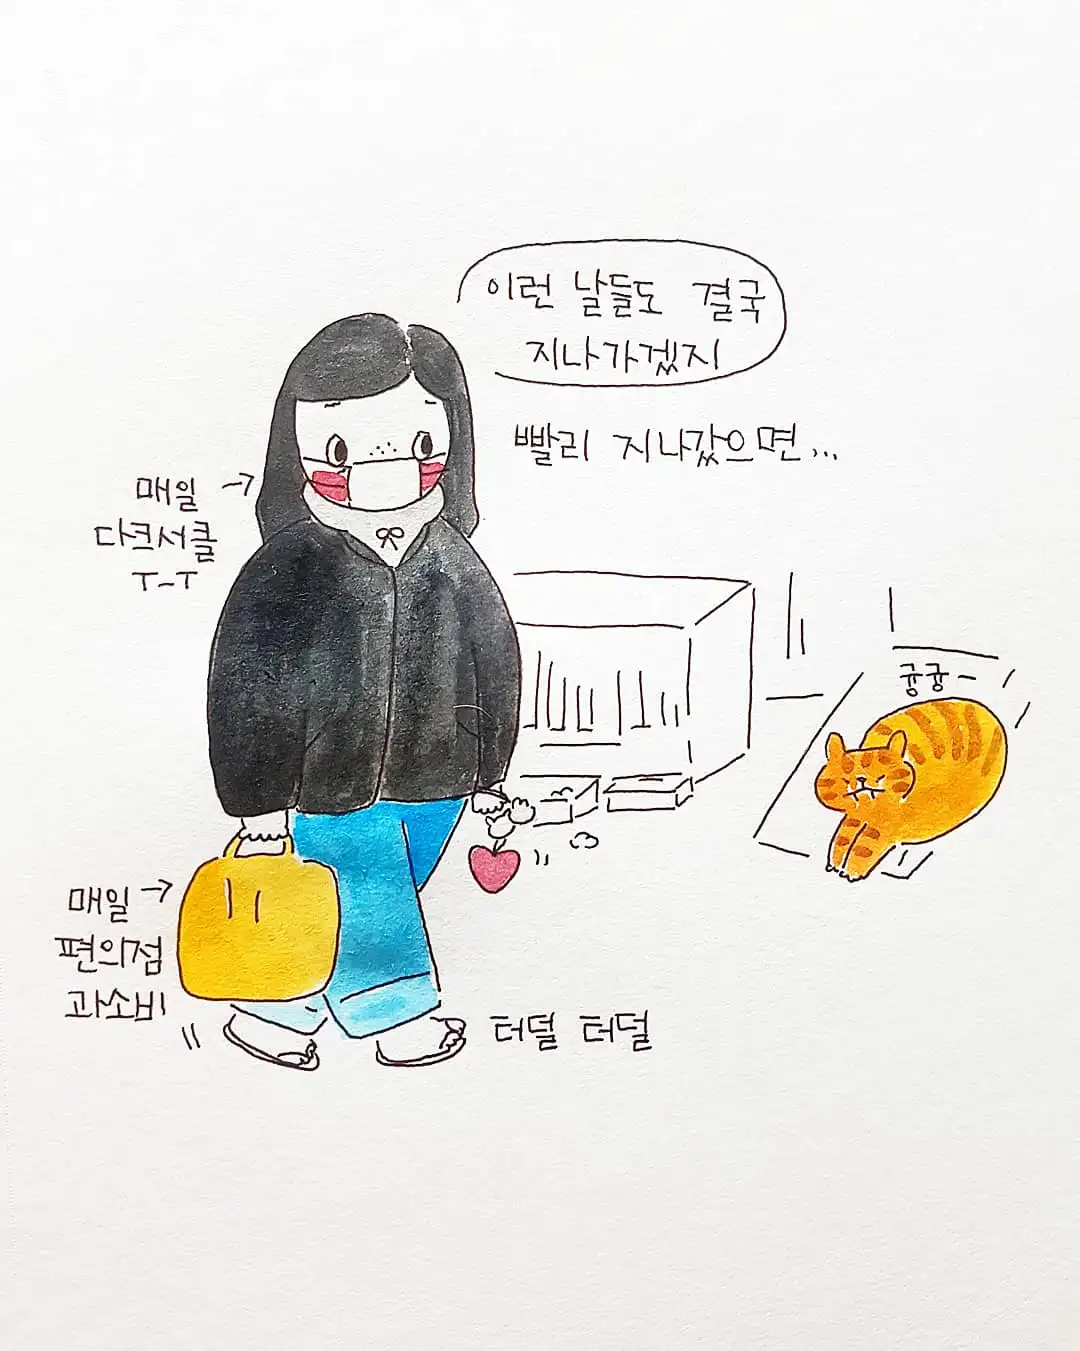 이런 날들도 결국
지나가겠지
빨리 지나갔으면...
매일 →
다크서클
T-T
궁궁~
매일 →
편의점
과소비
터덜 터덜